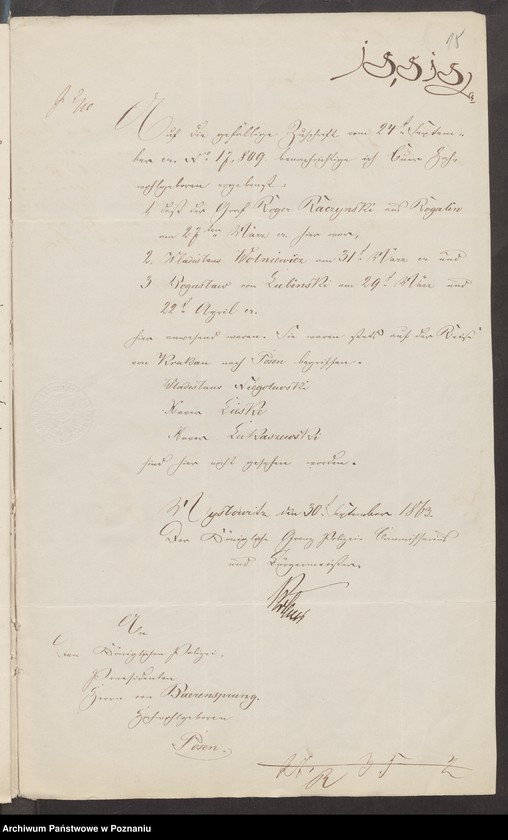 15
Auf die gefällige Zuschrift vom 24t Septem-
ber cr. No 17,849 benachrichtige ich Euer Hoch-
wohlgeboren ergebenst,
1, daß der Graf Roger Raczynski aus Rogalin
am 27ten März cr. hier war,
2. Wladislaus Wolniewicz am 31t März cr. und
3 Boguslaw von Lubinski am 29t März und
22t April cr.
hier anwesend waren. Sie waren stets auf der Reise
von Krakau nach Posen begriffen.
Wladislaus Niegolewski
Lukaszewski
sind hier nicht gesehen worden.
Myslowitz den 30t September 1863.
Der Königliche Grenz Polizei Commissarius
und Bürgermeister.
An
den Königlichen Polizei-
Praesidenten
Herrn von Baerensprung.
Hochwohlgeboren
Posen.
Archiwum Państwowe w Poznaniu